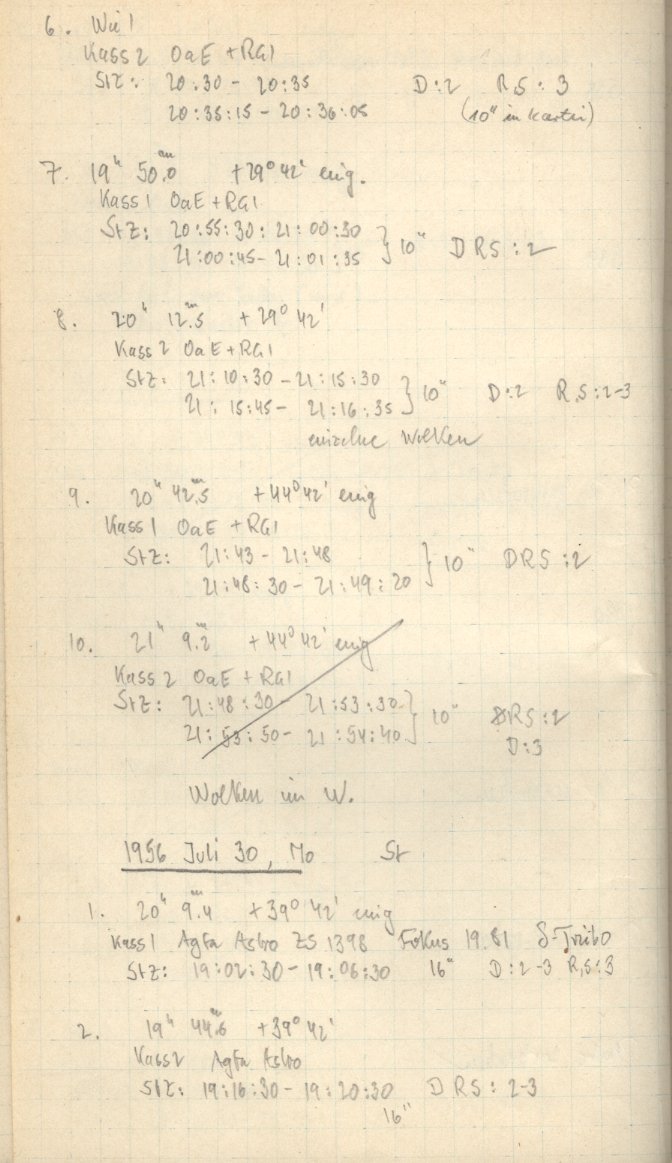 6. Wie 1
Kass 2 OaE + RG1
StZ: 20:30 - 20:35 D:2 R,S: 3
20:35:15 - 20:36:05 (10" in Kartei)
7. 19ʰ 50.ᵐ0 +29° 42'
Kass 1 OaE + RG1
StZ: 20:55:30: 21:00:30
21:00:45 - 21:01:35 } 10" D R S : 2
8. 20ʰ 12.ᵐ5 +29° 42'
Kass 2 OaE + RG1
StZ: 21:10:30 - 21:15:30
21: 15:45 - 21:16:35 } 10" D:2 R,S:2-3
einzelne Wolken
9. 20ʰ 42.ᵐ5 +44° 42'
Kass 1 OaE + RG1
StZ: 21:43 - 21:48
21:48:30 - 21:49:20 } 10" DRS : 2
10. 21ʰ 9.ᵐ2 +44° 42'
Kass 2 OaE + RG1
StZ: 21:48:30 - 21:53:30
21:53:50 - 21:54:40 } 10" RS : 2
D:3
Wolken im W.
1956 Juli 30, Mo St
1. 20ʰ 9.ᵐ4 +39° 42'
Kass 1 Agfa Astro ZS 1398 Fokus 19.81
StZ: 19:02:30 - 19:06:30 16" D:2-3 R,S:3
2. 19ʰ 44.ᵐ6 +39° 42'
Kass 2 Agfa Astro
StZ: 19:16:30 - 19:20:30 D R S : 2-3
16"